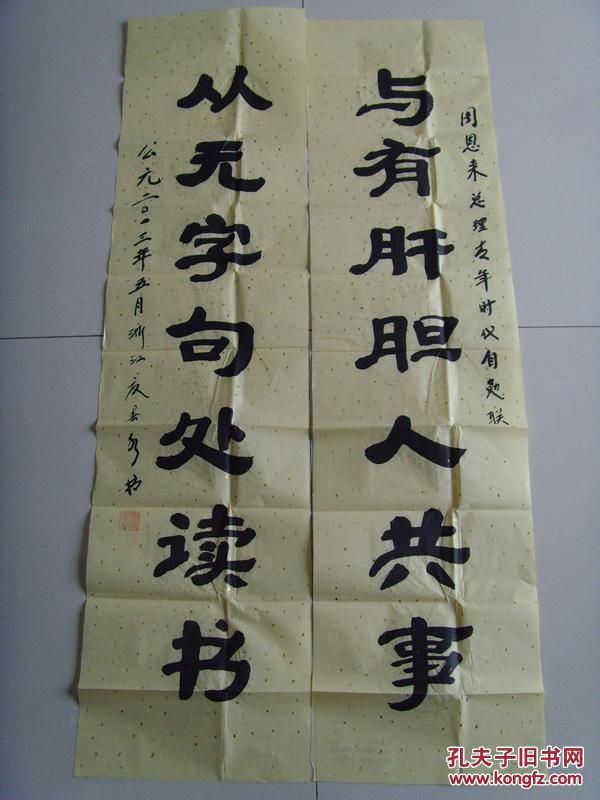 周恩来总理青年时代自勉联
与有肝胆人共事
从无字句处读书
公元二〇一三年五月浙江
孔夫子旧书网
www.kongfz.com